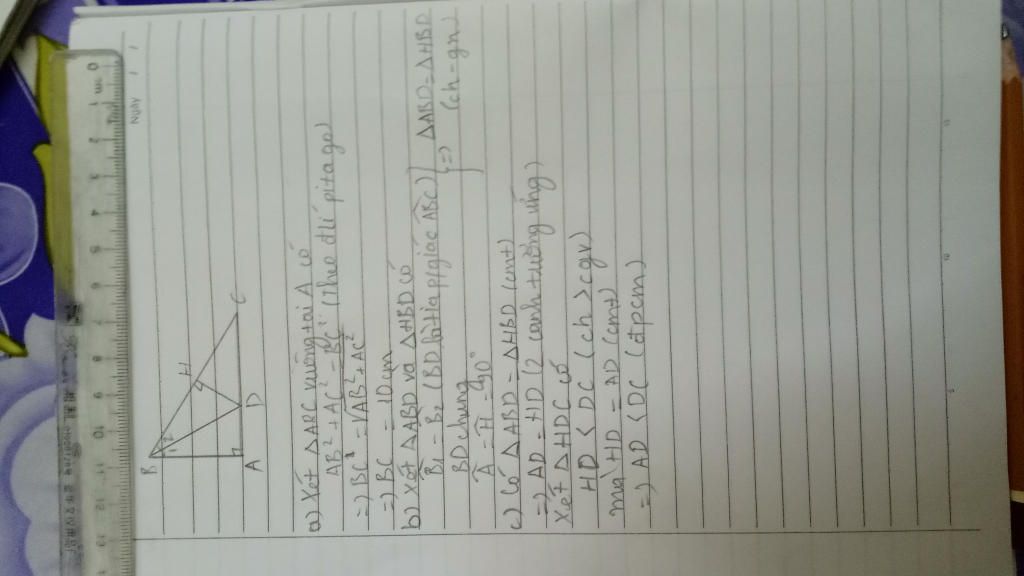 Ngày / /
B
1 2
H
A
D
C
a) Xét ΔABC vuông tại A có
AB² + AC² = BC² (Theo đlí pitago)
=) BC² = √AB² + AC²
=) BC = 10 cm
b) Xét ΔABD và ΔHBD có
B̂₁ = B̂₂ (BD là tia p/giác ABC)
BD chung
Â = Ĥ = 90°
=) ΔABD = ΔHBD
(ch - gn)
c) Có ΔABD = ΔHBD (cmt)
=) AD = HD (2 cạnh tương ứng)
Xét ΔHDC có
HD < DC (ch > cgv)
mà HD = AD (cmt)
=) AD < DC (đpcm)
0 1 2 3 10 11 12 13
5 10 15